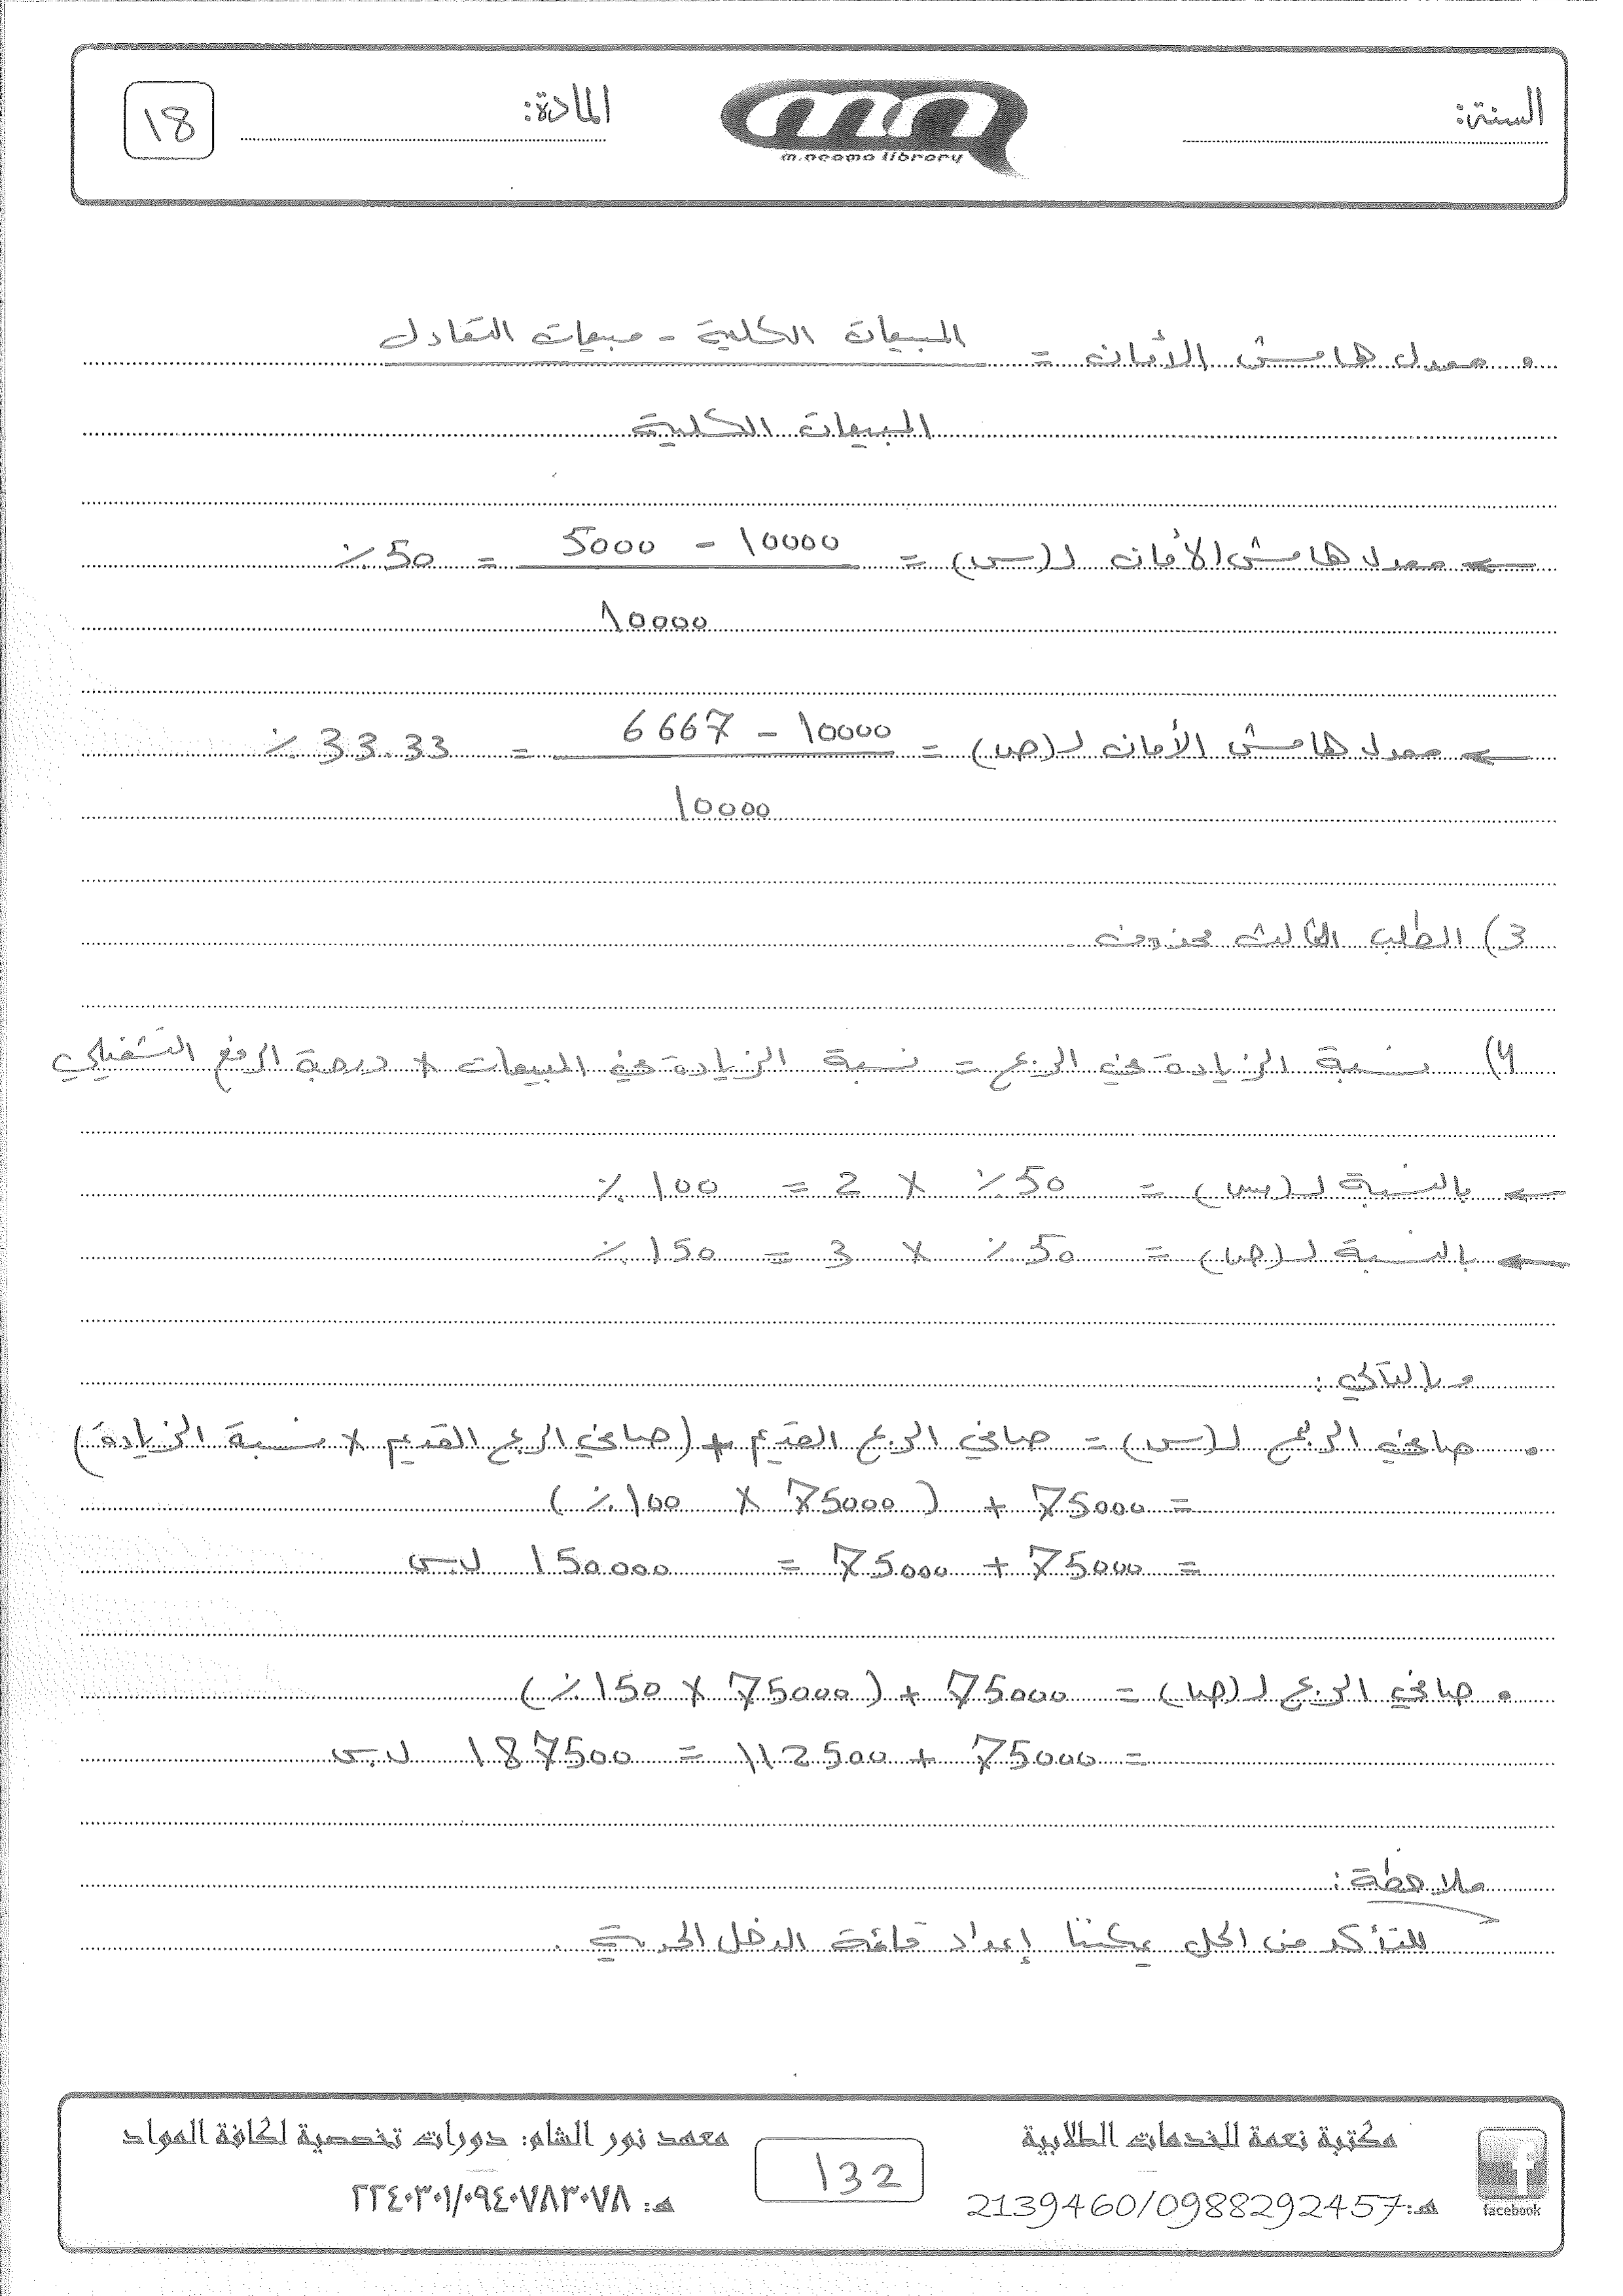 السنة:
m.neama library
المادة:
18
• معدل هامش الأمان = المبيعات الكلية - مبيعات التعادل
المبيعات الكلية
← معدل هامش الأمان لـ (س) = 10000 - 5000 = 50 ٪
10000
← معدل هامش الأمان لـ (ص) = 10000 - 6667 = 33.33 ٪
10000
3) الطلب الثالث محذوف
4) نسبة الزيادة في الربح = نسبة الزيادة في المبيعات × درجة الرفع التشغيلي
← بالنسبة لـ (س) = 50 ٪ × 2 = 100 ٪
← بالنسبة لـ (ص) = 50 ٪ × 3 = 150 ٪
وبالتالي :
• صافي الربح لـ (س) = صافي الربح القديم + (صافي الربح القديم × نسبة الزيادة)
= 75000 + (75000 × 100 ٪)
= 75000 + 75000 = 150000 ل.س
• صافي الربح لـ (ص) = 75000 + (75000 × 150 ٪)
= 75000 + 112500 = 187500 ل.س
ملاحظة :
للتأكد من الحل يمكننا إعداد قائمة الدخل الحدية .
facebook
مكتبة نعمة للخدمات الطلابية
هـ: 2139460/0988292457
132
معهد نور الشام: دورات تخصصية لكافة المواد
هـ: ٢٢٤٠٣٠١/٠٩٤٠٧٨٣٠٧٨